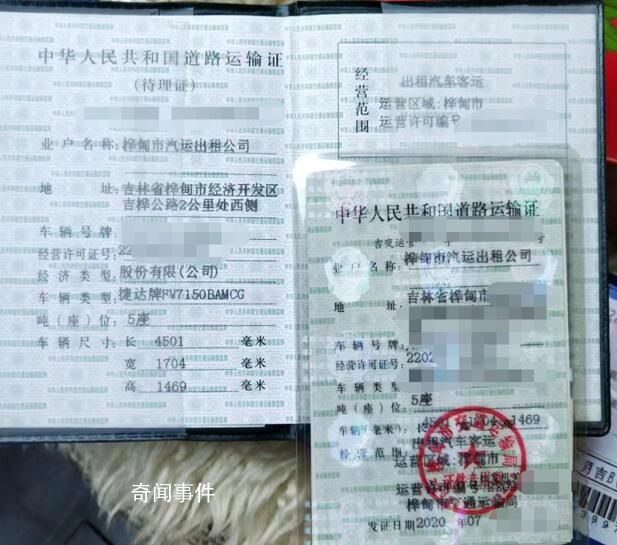 中华人民共和国道路运输证
(待理证)
业户名称:桦甸市汽运出租公司
地 址:吉林省桦甸市经济开发区
吉桦公路2公里处西侧
车辆号牌:
经营许可证号:22
经济类型:股份有限(公司)
车辆类型:捷达牌FV7150BAMCG
吨(座)位:5座
车辆尺寸:长 4501 毫米
宽 1704 毫米
高 1469 毫米
经营范围
出租汽车客运
运营区域:桦甸市
运营许可编号
中华人民共和国道路运输证
吉交运管
号
业户名称:桦甸市汽运出租公司
地 址:吉林省桦甸市
车辆号牌:
经营许可证号:2202
车辆类型:
吨(座)位:5座
车辆(毫米):长4501 1704 1469
经营范围:出租汽车客运
运营区域:桦甸市
运营许可编号:
桦甸市交通运输局
发证日期2020 年07
奇闻事件
月吉B